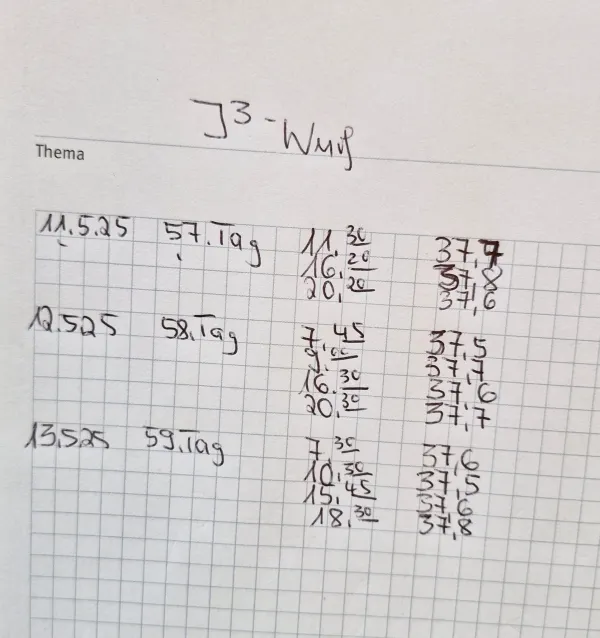 J³-Wurf
Thema
11.5.25 57.Tag 11,30 37,7
16,20 37,8
20,20 37,6
12.525 58.Tag 7,45 37,5
9,00 37,7
16.30 37,6
20,30 37,7
13.525 59.Tag 7,30 37,6
10,30 37,5
15,45 37,6
18,30 37,8